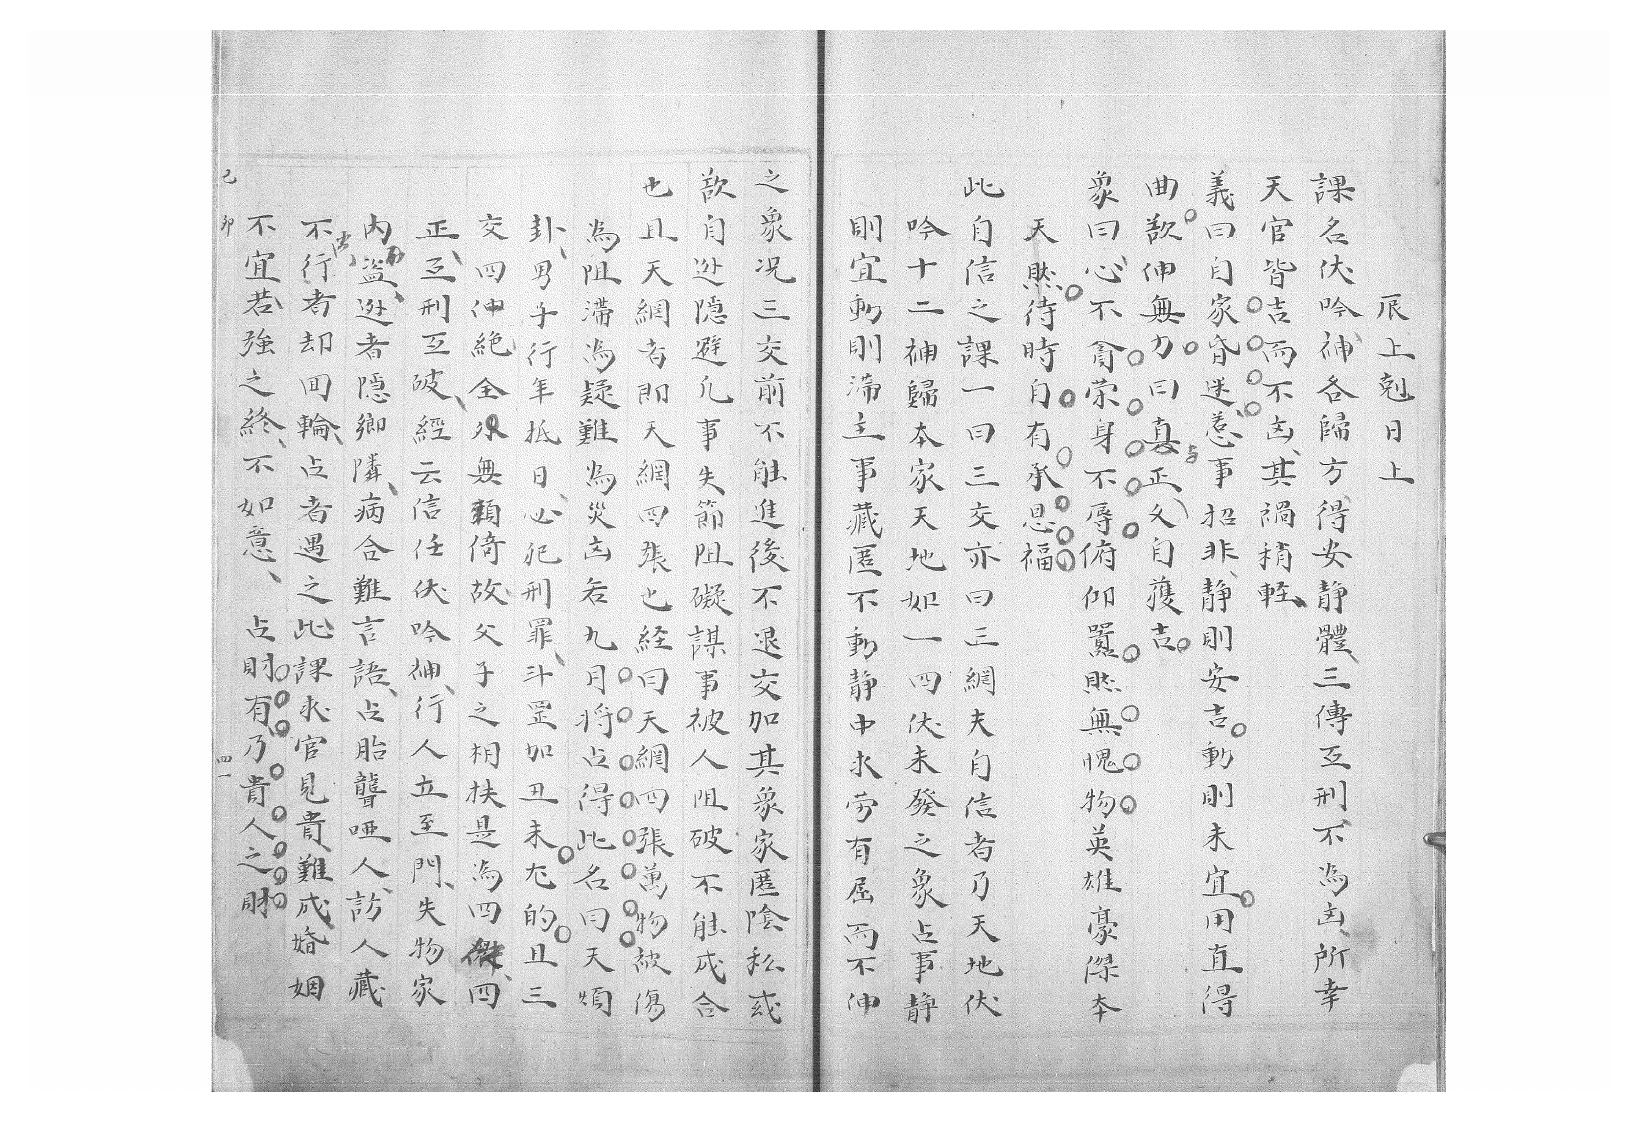 辰上剋日上
課名伏吟神各歸方得安静體三傳互刑不為凶所幸
天官皆吉而不凶其禍稍輕
義曰自家昏迷惹事招非静則安吉動則未宜用直得
曲歎伸無力曰真正父自獲吉
象曰心不貪荣身不辱俯仰囂然無愧物英雄豪傑本
天然待時自有承恩福
此自信之課一曰三交亦曰三網夫自信者乃天地伏
吟十二神歸本家天地如一四伏未發之象占事静
則宜動則滯主事藏匿不動静中求劳有屈而不伸
之象况三交前不能進後不退交加其象家匿陰私或
歎自迯隱避凡事失節阻礙謀事被人阻破不能成合
也且天網者即天網四張也経曰天網四張萬物被傷
為阻滯為疑難為災凶若九月将占得此名曰天煩
卦男子行年抵日必犯刑罪斗罡加丑未尤的且三
交四仲絶全衣無頼倚故父子之相扶是為四傑四
正互刑互破經云信任伏吟神行人立至門失物家
内盜迯者隱鄉隣病合難言語占胎聾啞人訪人藏
不行者却回輪占者遇之此課求官見貴難成婚姻
不宜若強之終不如意占財有乃貴人之財
己卯 四一